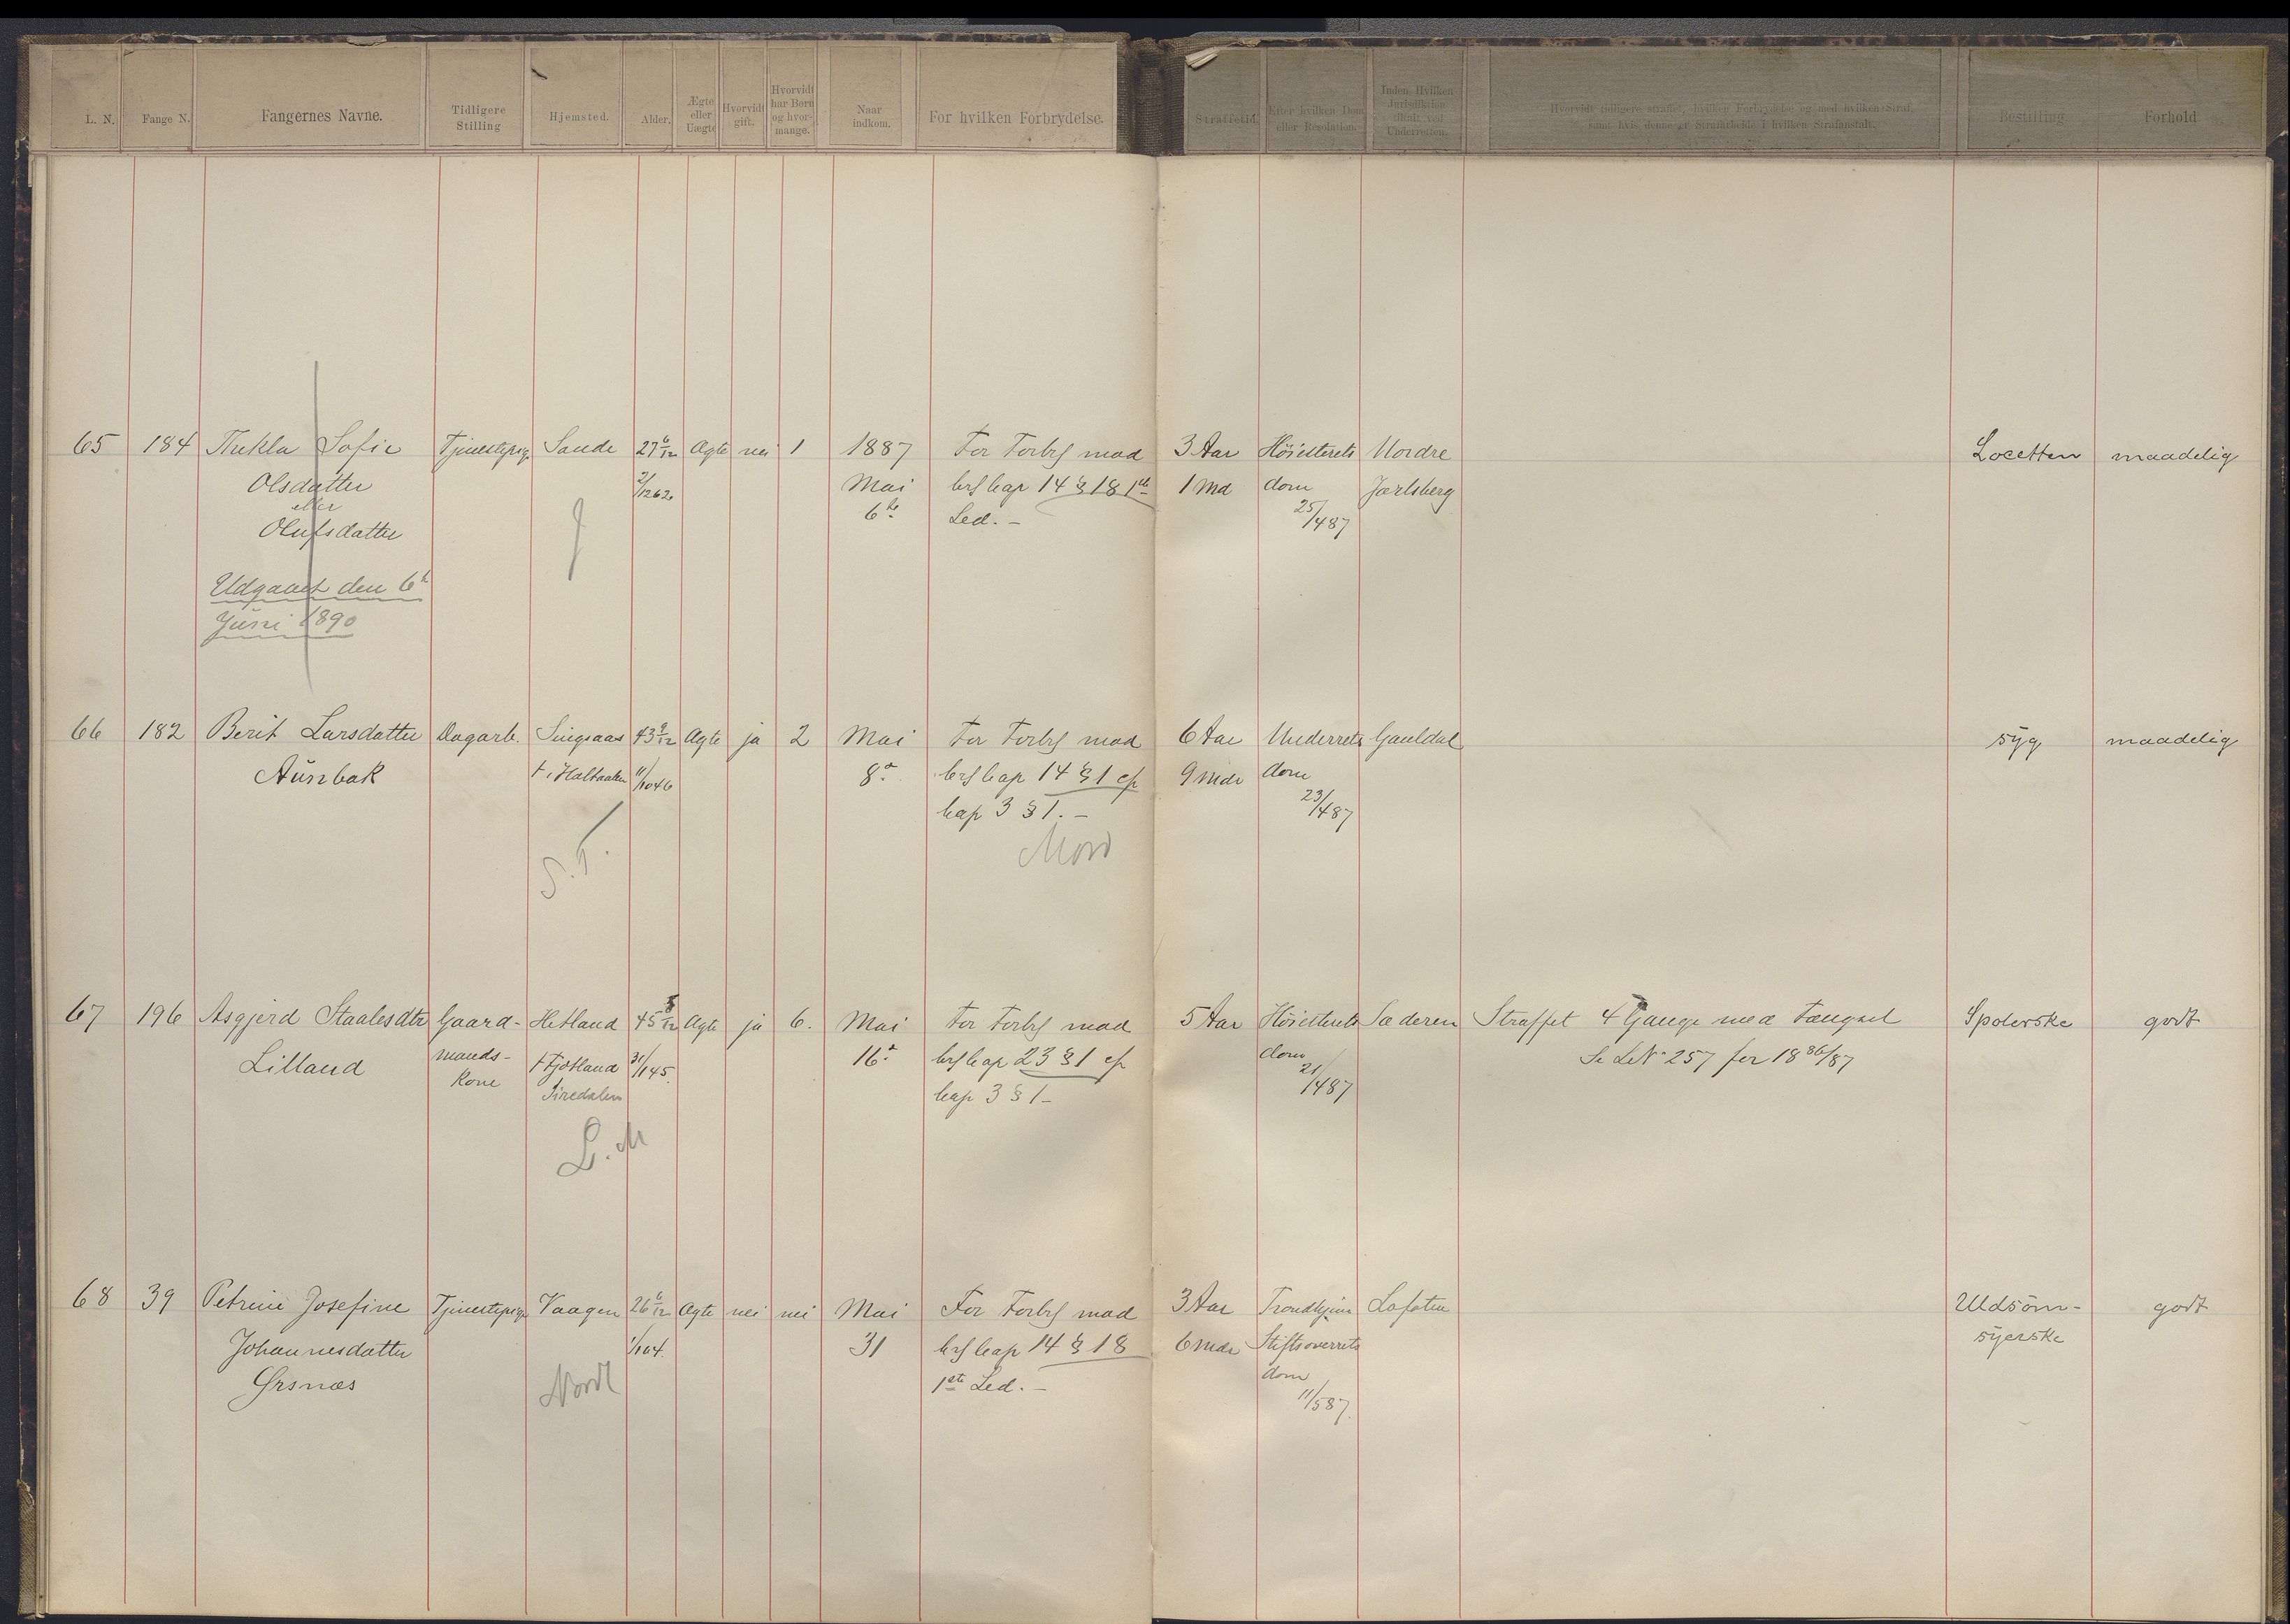 L. N.
Fange N.
Fangernes Navne.
Tidligere
Stilling
Hjemsted.
Alder.
Ægte
eller
Uægte
Hvorvidt
gift.
Hvorvidt
har Børn
og hvor-
mange.
Naar
indkom.
For hvilken Forbrydelse.
Straffetid.
Efter hvilken Dom
eller Resolution.
Inden Hvilken
Jurisdiktion
tiltalt ved
Underretten.
Hvorvidt tidligere straffet, hvilken Forbrydelse og med hvilken Straf,
samt hvis denne er Strafarbeide i hvilken Strafanstalt.
Bestilling
Forhold
65 184 Thekla Sofie Tjenestepige Sande 27 6/12 Ægte nei 1 1887 For Forbr mod 3 Aar Høiesterets Nordre maadelig
Olsdatter 2/12 62 Mai krf kap 14 § 18 1ste 1 Md dom Jarlsberg
eller 6te Led. – 25/4 87
Olufsdatter
Udgaaet den 6te
Juni 1890
66 182 Berit Larsdatter Dagarb. Singsaas 43 6/12 Ægte ja 2 Mai For Forbr mod 6 Aar Underrets Gauldal syg maadelig
Aunbak f. i Holtaalen 11/10 46 8de krf kap 14 § 1 cfr 9 Mdr dom
kap 3 § 1. – 23/4 87
S. T. Mord
67 196 Asgjerd Staalesdtr Gaard- Hetland 45 /12 Ægte ja 6. Mai For Forbr mod 5 Aar Høiesterets Jæderen Straffet 4 Gange med Fængsel Spolerske godt
Lilland mands- f. Fjotland 31/1 45. 16de krf kap 23 § 1 cfr dom Se L.N. 257 for 1886/87
kone Siredalen kap 3 § 1 – 21/4 87
L. M
68 39 Petrine Josefine Tjenestepige Vaagen 26 6/12 Ægte nei nei Mai For Forbr mod 3 Aar Trondhjems Lofoten Udsøm- godt
Johannesdatter 31 krf kap 14 § 18 6 Mdr Stiftsoverrets syerske
Ørsnæs Nordl 1ste Led. – dom
11/5 87.